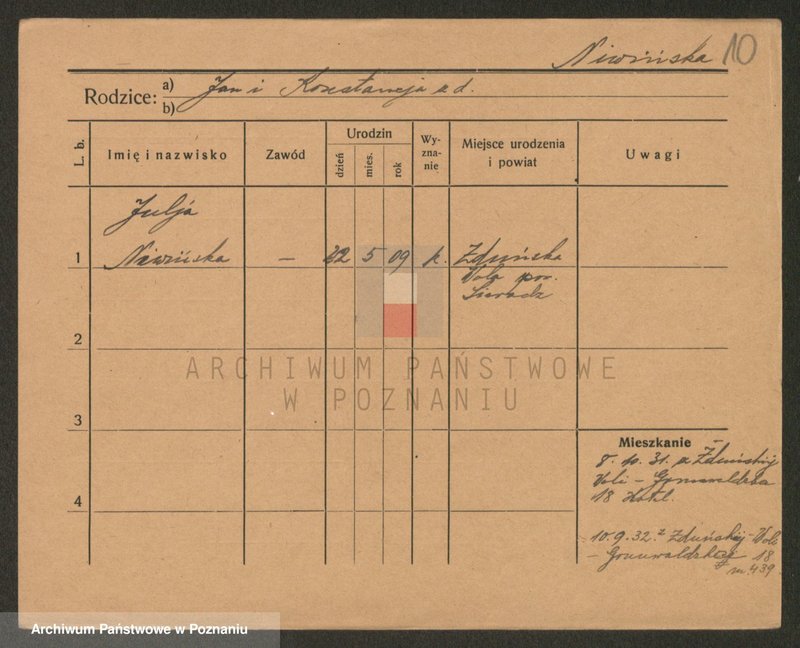 Niwińska 10
Rodzice: a) Jan i Konstancja
b)
L. b. Imię i nazwisko Zawód Urodzin dzień mies. rok Wy-zna-nie Miejsce urodzenia i powiat Uwagi
Julja
1 Niwińska — 22 5 09 k. Zduńska
Wola pow.
Sieradz
2
ARCHIWUM PAŃSTWOWE
W POZNANIU
3
Mieszkanie
8. 10. 31. z Zduńskiej
Woli – Grunwaldzka
18
4
10.9.32. z Zduńskiej-Woli
– Grunwaldzka 18
m. 439
Archiwum Państwowe w Poznaniu